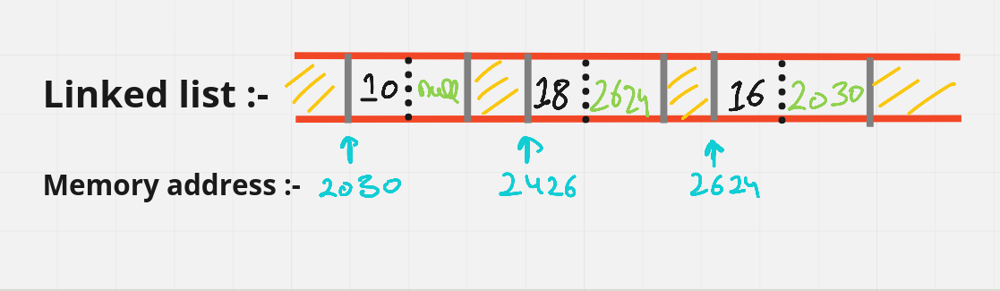 Linked list :- 10 null 18 2624 16 2030
Memory address :- 2030 2426 2624